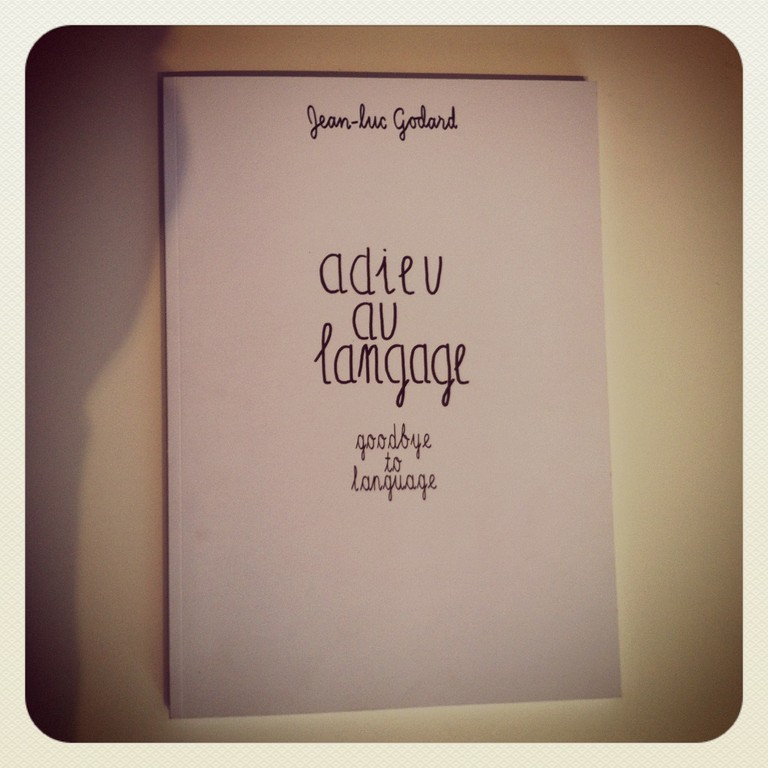 Jean-luc Godard
adieu
au
langage
goodbye
to
language